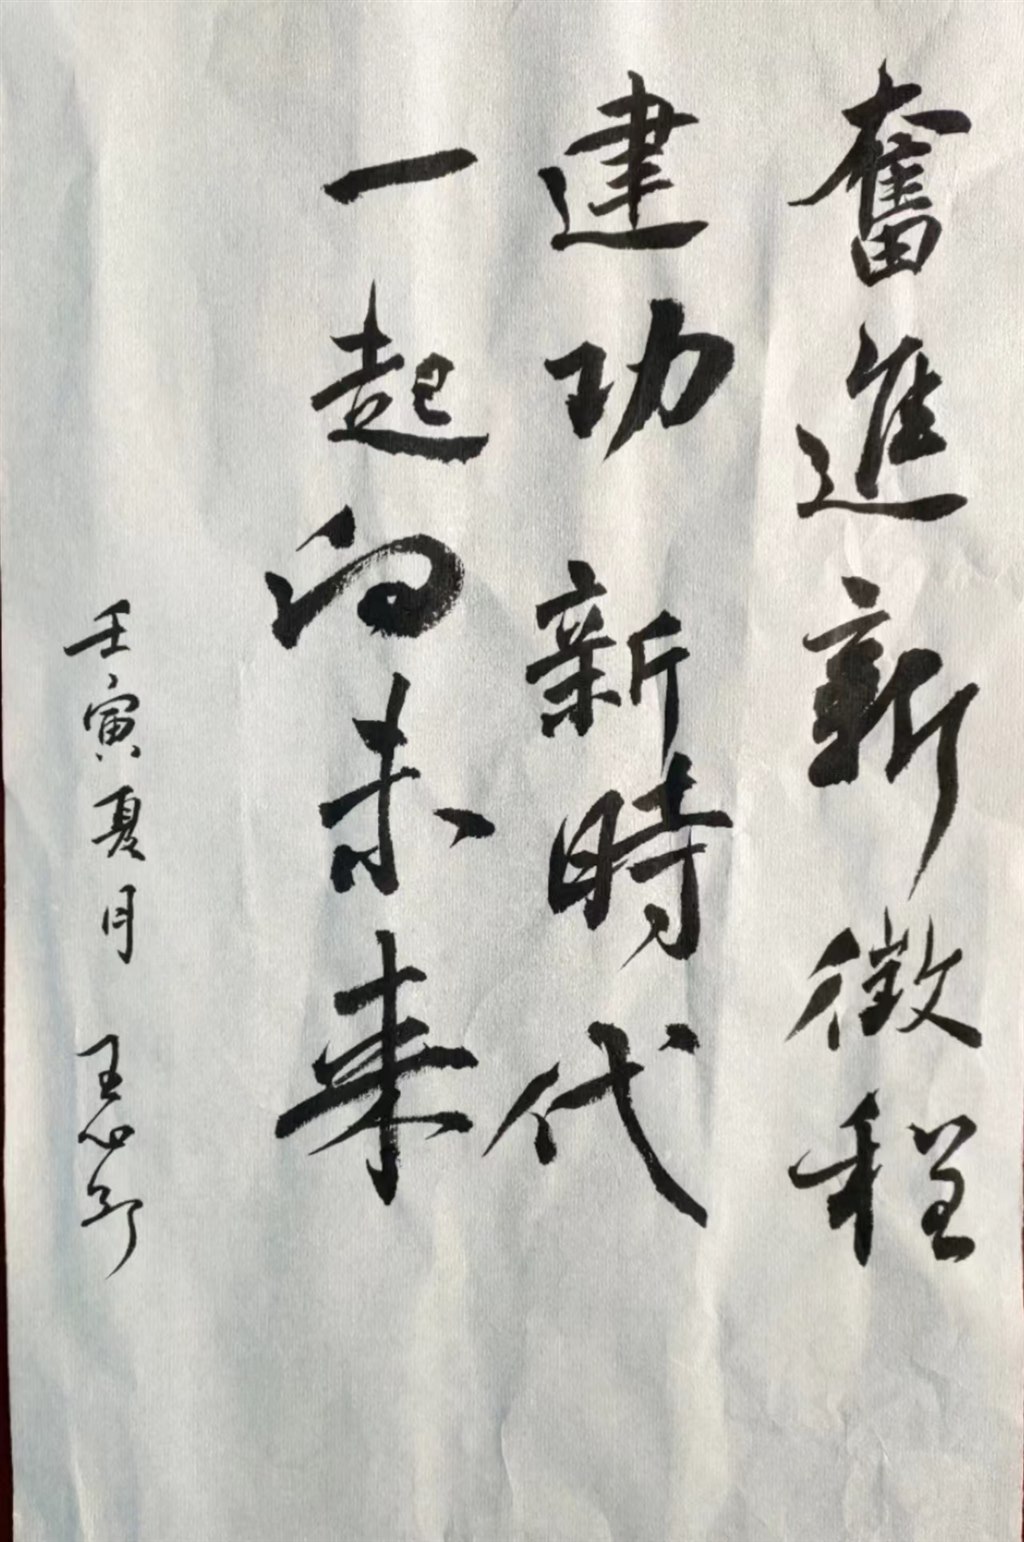 奮進新徵程
建功新時代
一起向未来
壬寅夏月 王心